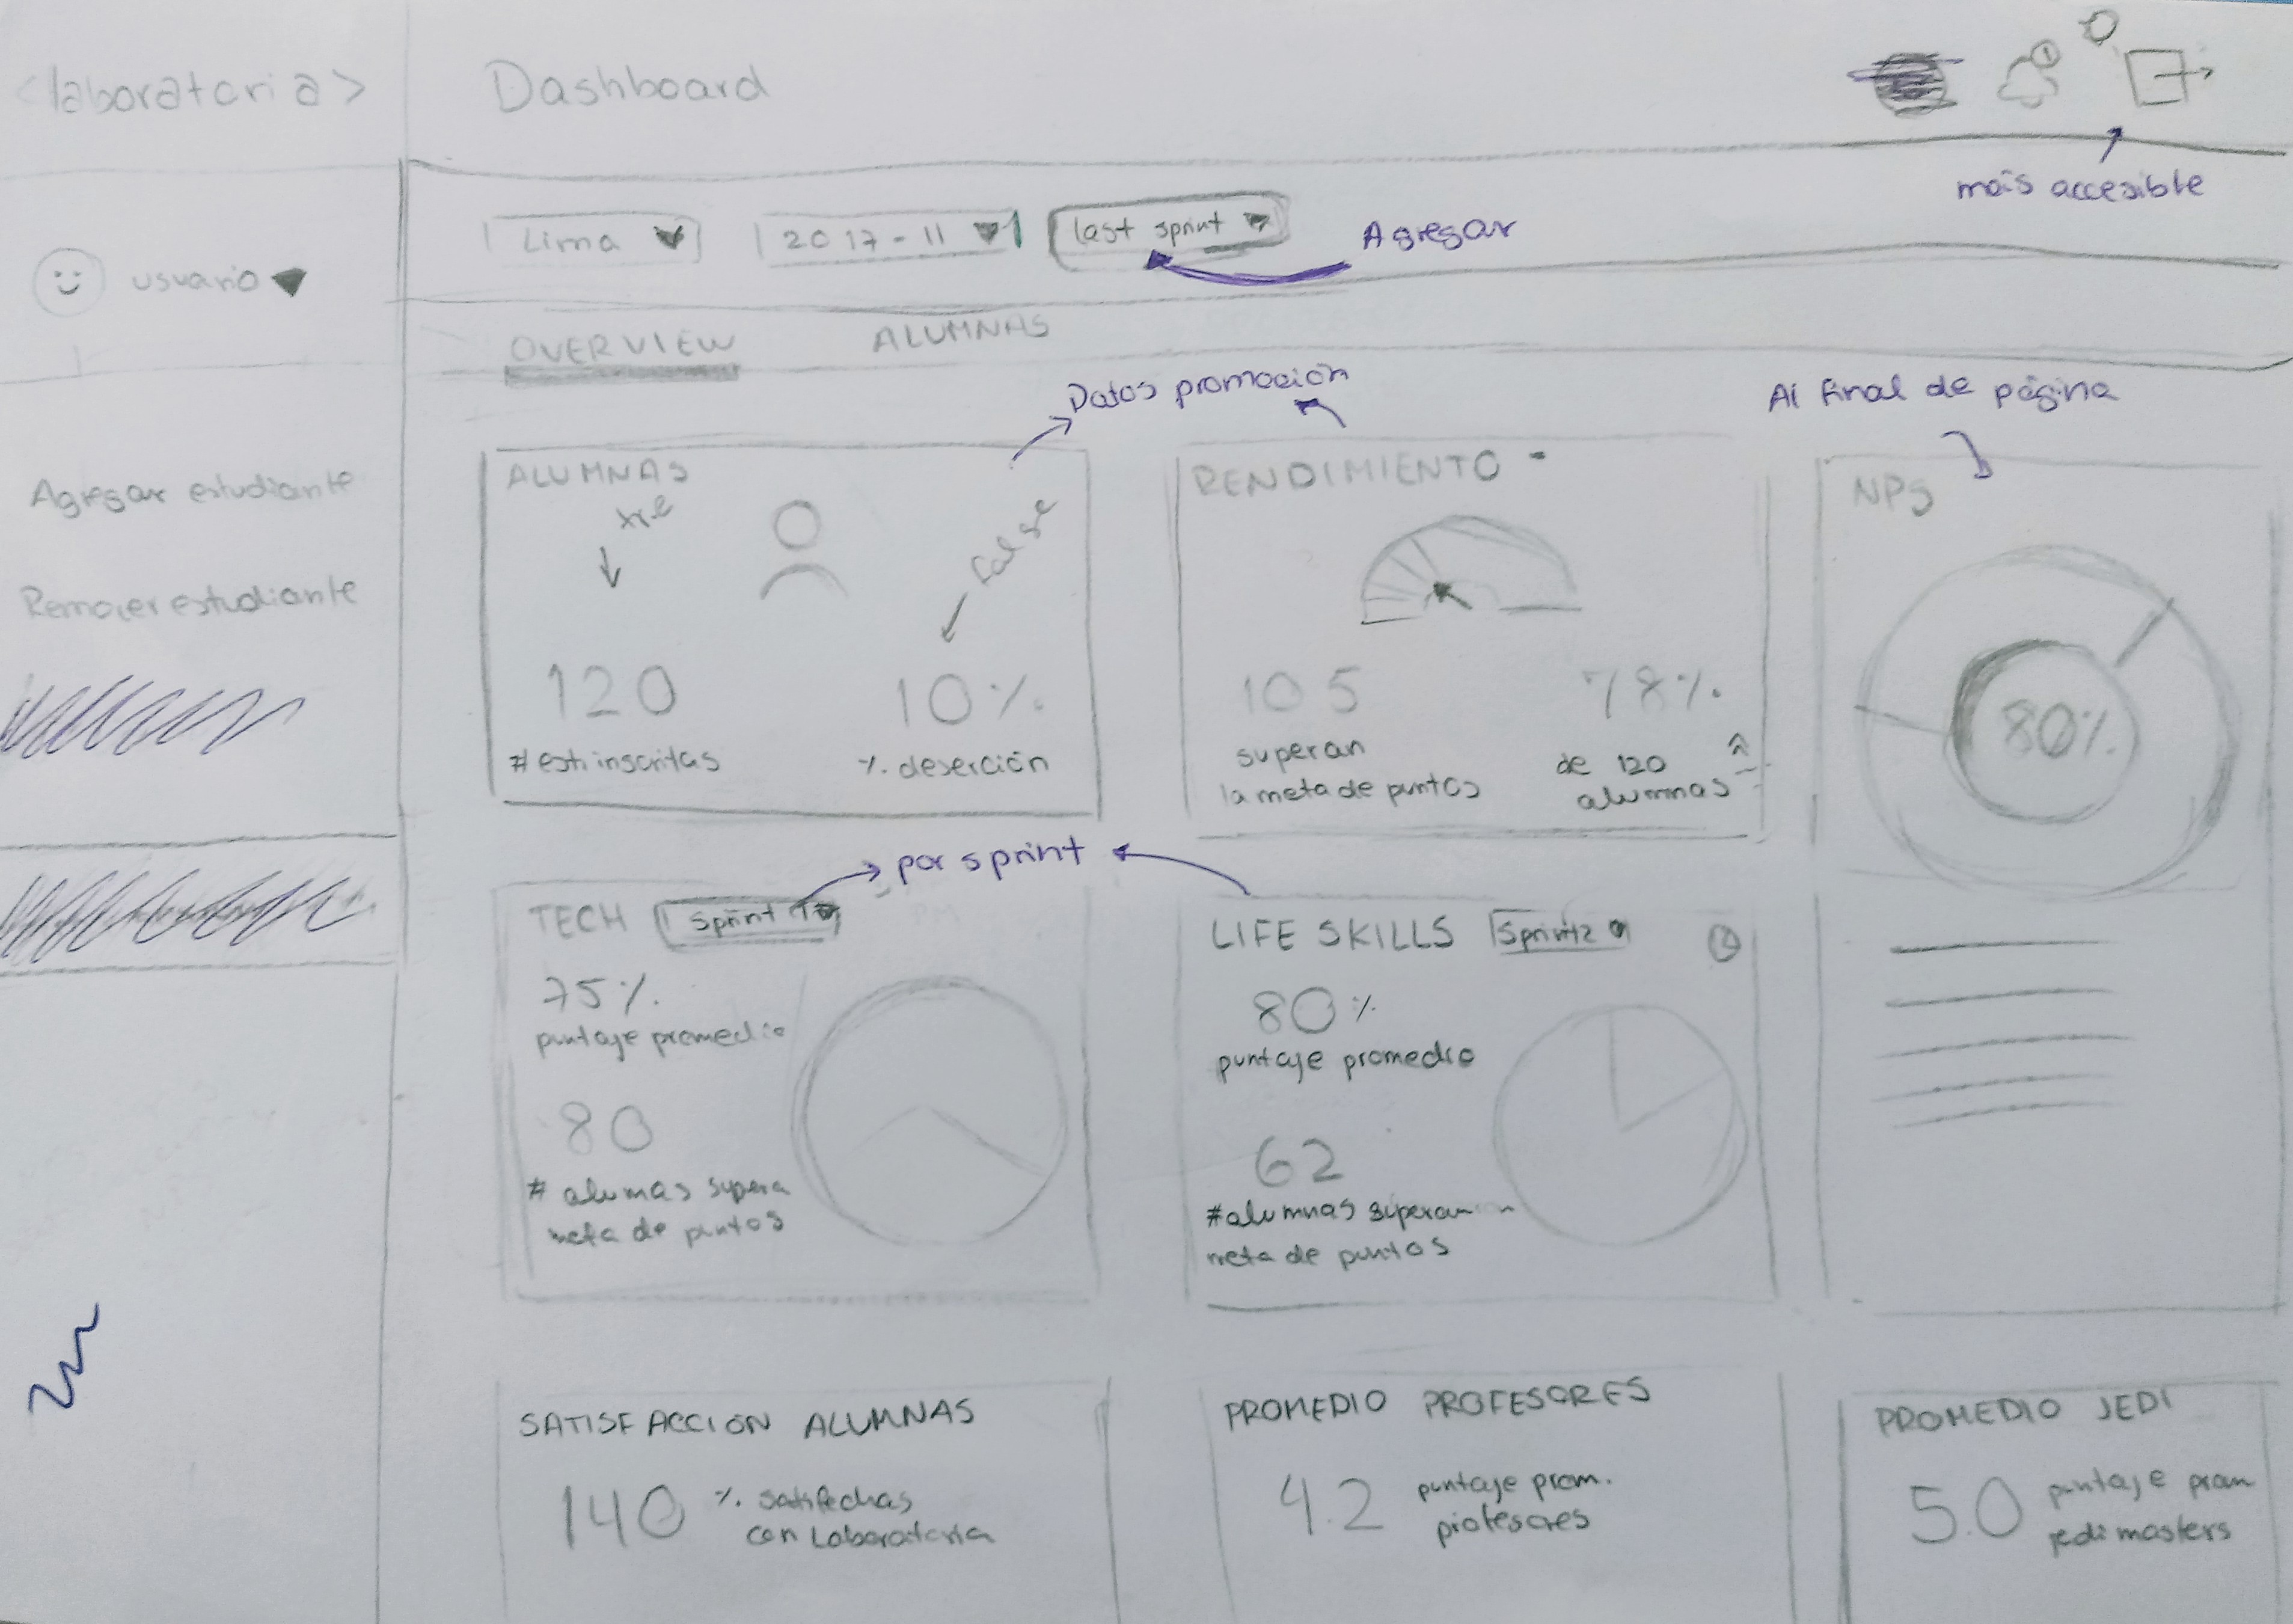 <laboratoria>
Dashboard
mais accesible
Lima
2017-11
last sprint
Agregar
usuario
OVERVIEW
ALUMNAS
Datos promoción
Al final de página
Agregar estudiante
Remover estudiante
ALUMNAS
false
120
# est. inscritas
10%
% deserción
RENDIMIENTO
105
superan
la meta de puntos
78%
de 120
alumnas
NPS
80%
por sprint
TECH
Sprint 1
75%
puntaje promedio
80
# alumas supera
meta de puntos
LIFE SKILLS
Sprint 2
80%
puntaje promedio
62
#alumnas superan
meta de puntos
SATISFACCIÓN ALUMNAS
140
% satifechas
con Laboratoria
PROMEDIO PROFESORES
4.2
puntaje prom.
profesores
PROMEDIO JEDI
5.0
puntaje prom
jedi masters